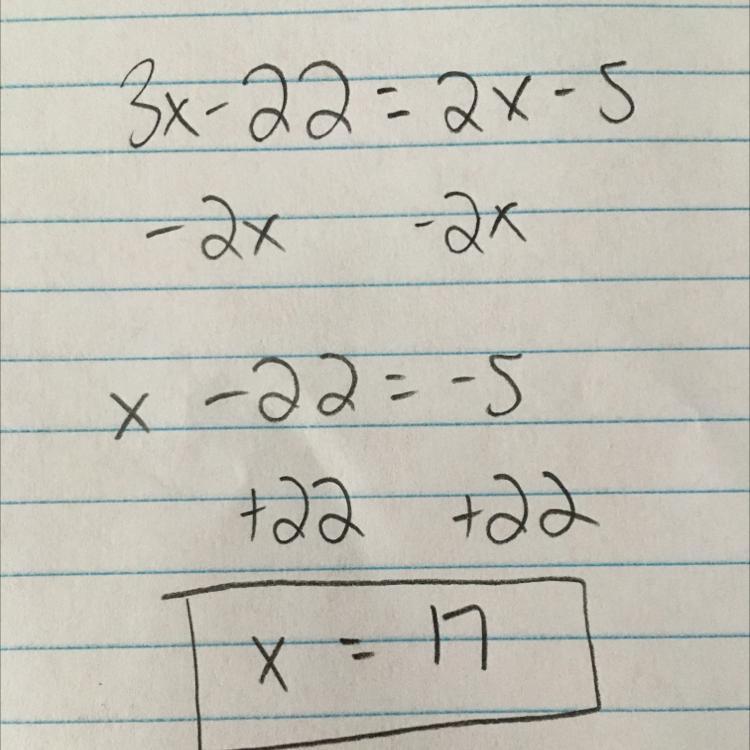 3x - 22 = 2x - 5
-2x -2x
x - 22 = -5
+22 +22
x = 17